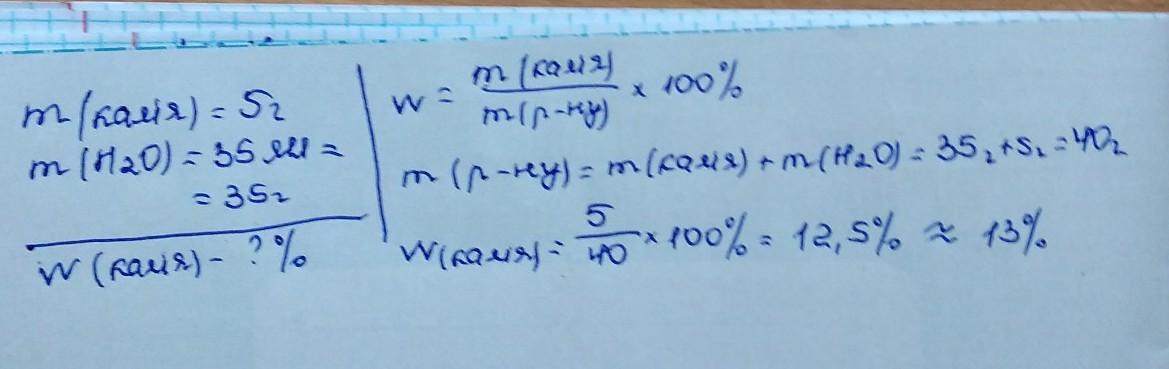 m (калія) = 5г
m (H2O) = 35 мл =
= 35г
W (калія) - ? %
W = m (калія) / m (р-ну) × 100%
m (р-ну) = m (калія) + m (H2O) = 35г + 5г = 40г
W (калія) = 5/40 × 100% = 12,5% ≈ 13%